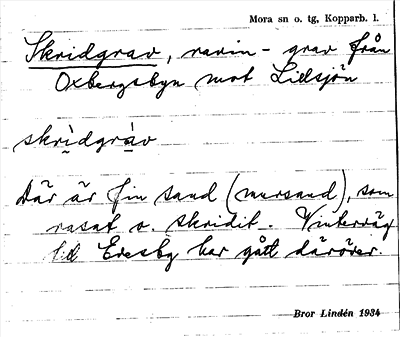 Mora sn o. tg, Kopparb. l.
Skridgrav, ravin - grav från
Oxbergsbyn mot Lillsjön
skri̱dgra̱v
Där är fin sand (mursand), som
rasat o. skridit. Vinterväg
till Evesby har gått däröver.
Bror Lindén 1934